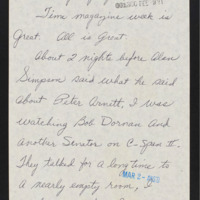 Time magazine week is
Great. All is Great.
About 2 nights before Alan
Simpson said what he said
about Peter Arnett, I was
watching Bob Dornan and
Another Senator on C-Span II.
They talked for a long time to
MAR 2 -
a nearly empty room, I